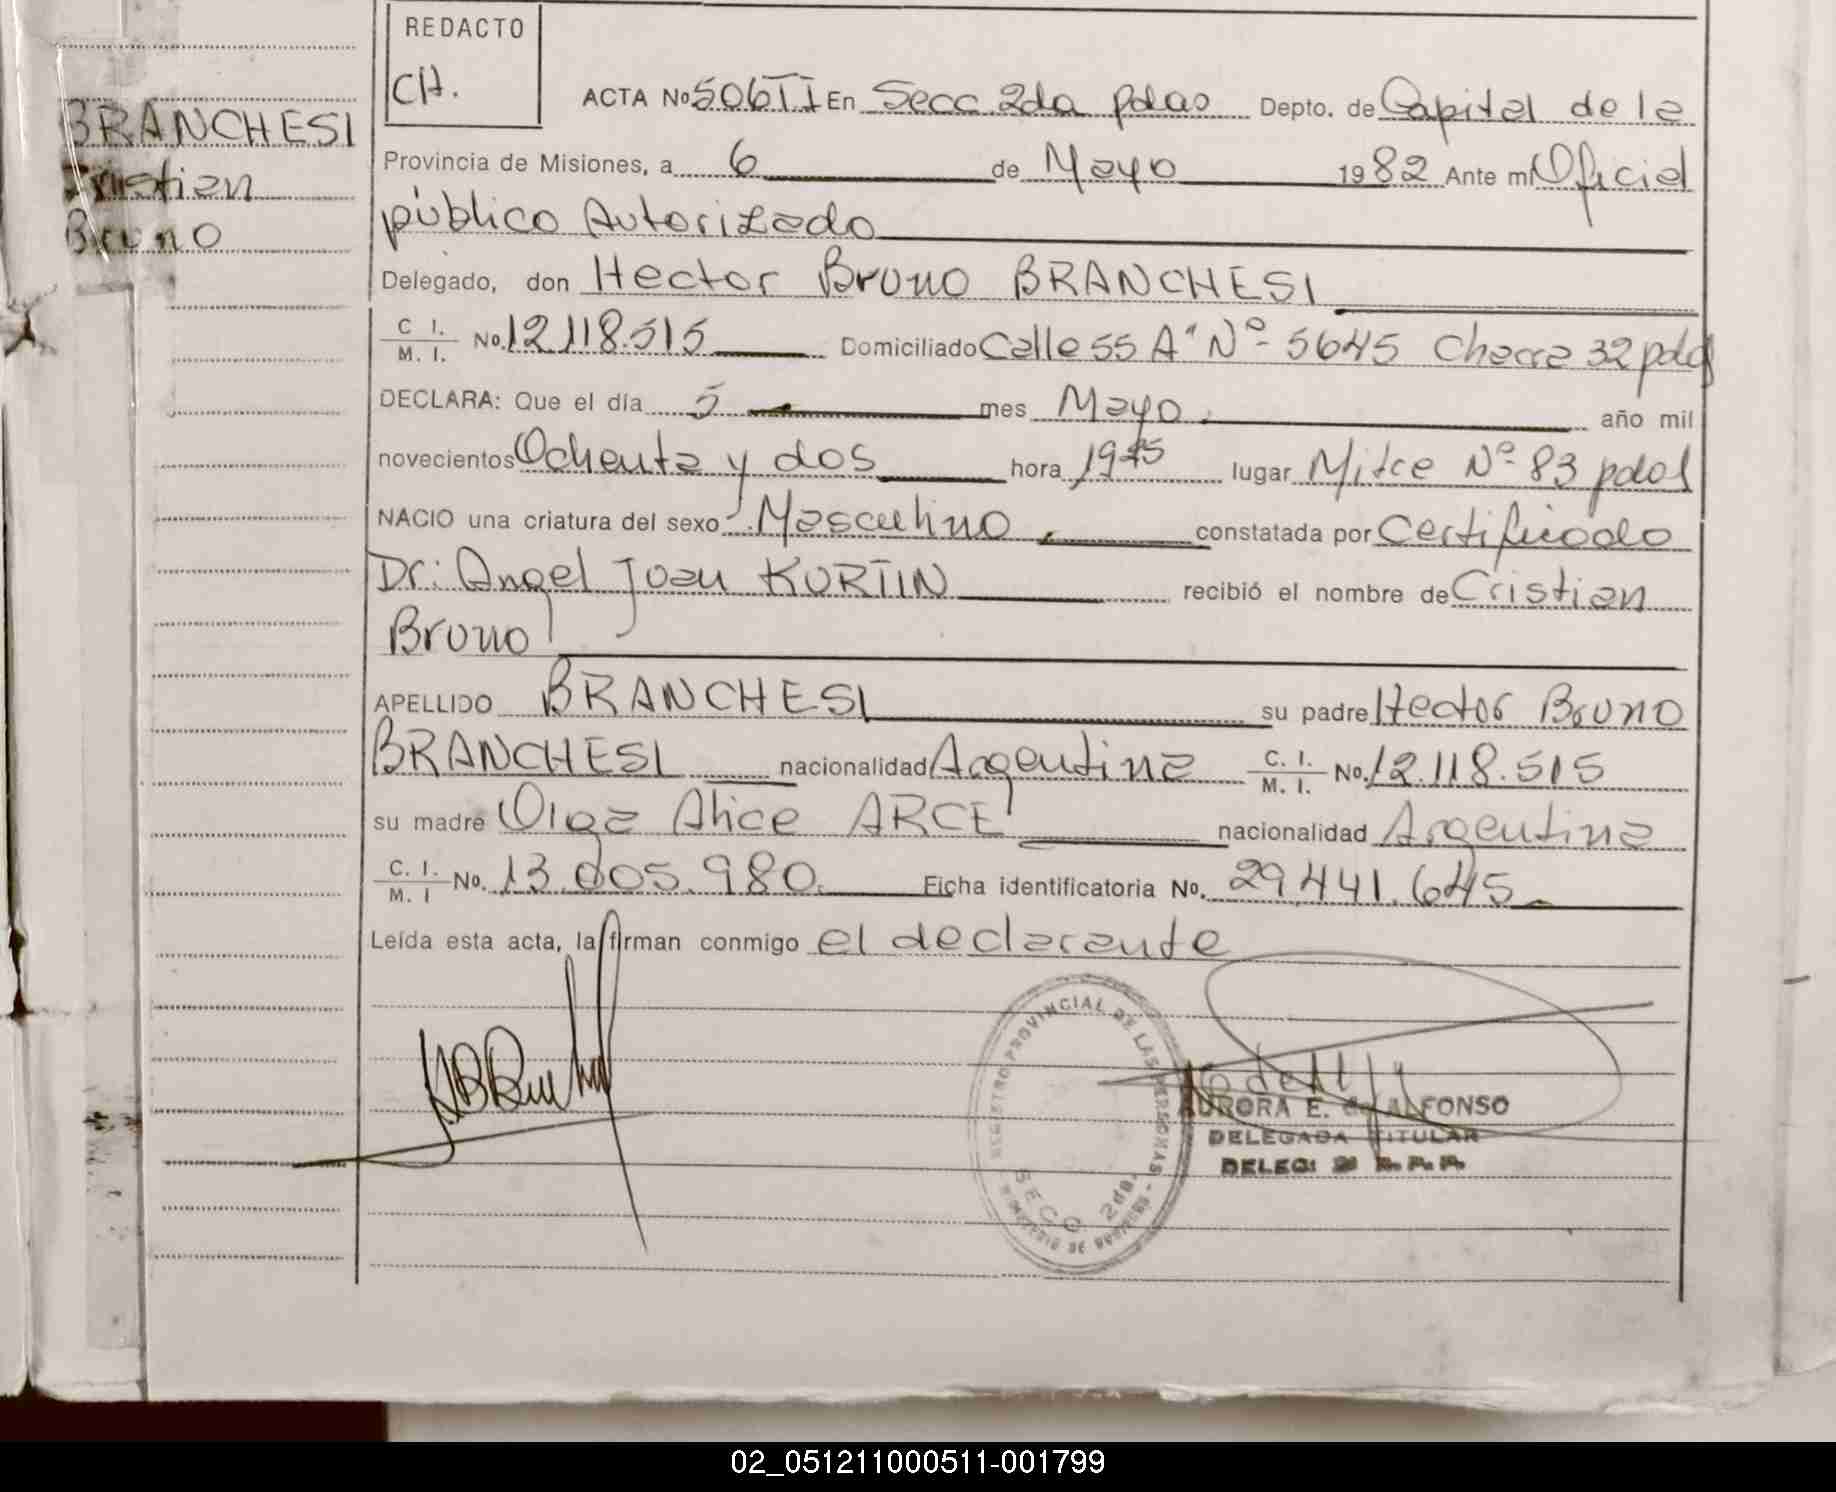 REDACTO
CH.
BRANCHESI
Cristian
Bruno
ACTA No 506TI En Secc 2da pdas Depto. de Capital de la
Provincia de Misiones, a 6 de Mayo 1982 Ante mi Oficial
público Autorizado
Delegado, don Hector Bruno BRANCHESI
C I. M. I. No. 12.118.515 Domiciliado Calle 55 A" Nº- 5645 Chacra 32 pdas
DECLARA: Que el día 5 mes Mayo año mil
novecientos Ochenta y dos hora 1945 lugar Mitre Nº- 83 pdas
NACIO una criatura del sexo Masculino constatada por Certificado
Dr: Angel Joan KURTIN recibió el nombre de Cristian
Bruno
APELLIDO BRANCHESI su padre Hector Bruno
BRANCHESI nacionalidad Argentina C. I. M. I. No. 12.118.515
su madre Olga Alice ARCE nacionalidad Argentina
C. I. M. I No. 13.005.980. Ficha identificatoria No. 29.441.645
Leída esta acta, la firman conmigo el declarante
REGISTRO PROVINCIAL DE LAS PERSONAS
SECC. 2da.
AURORA E. de ALFONSO
DELEGADA TITULAR
DELEG: 2ª R. P. P.
02_051211000511-001799